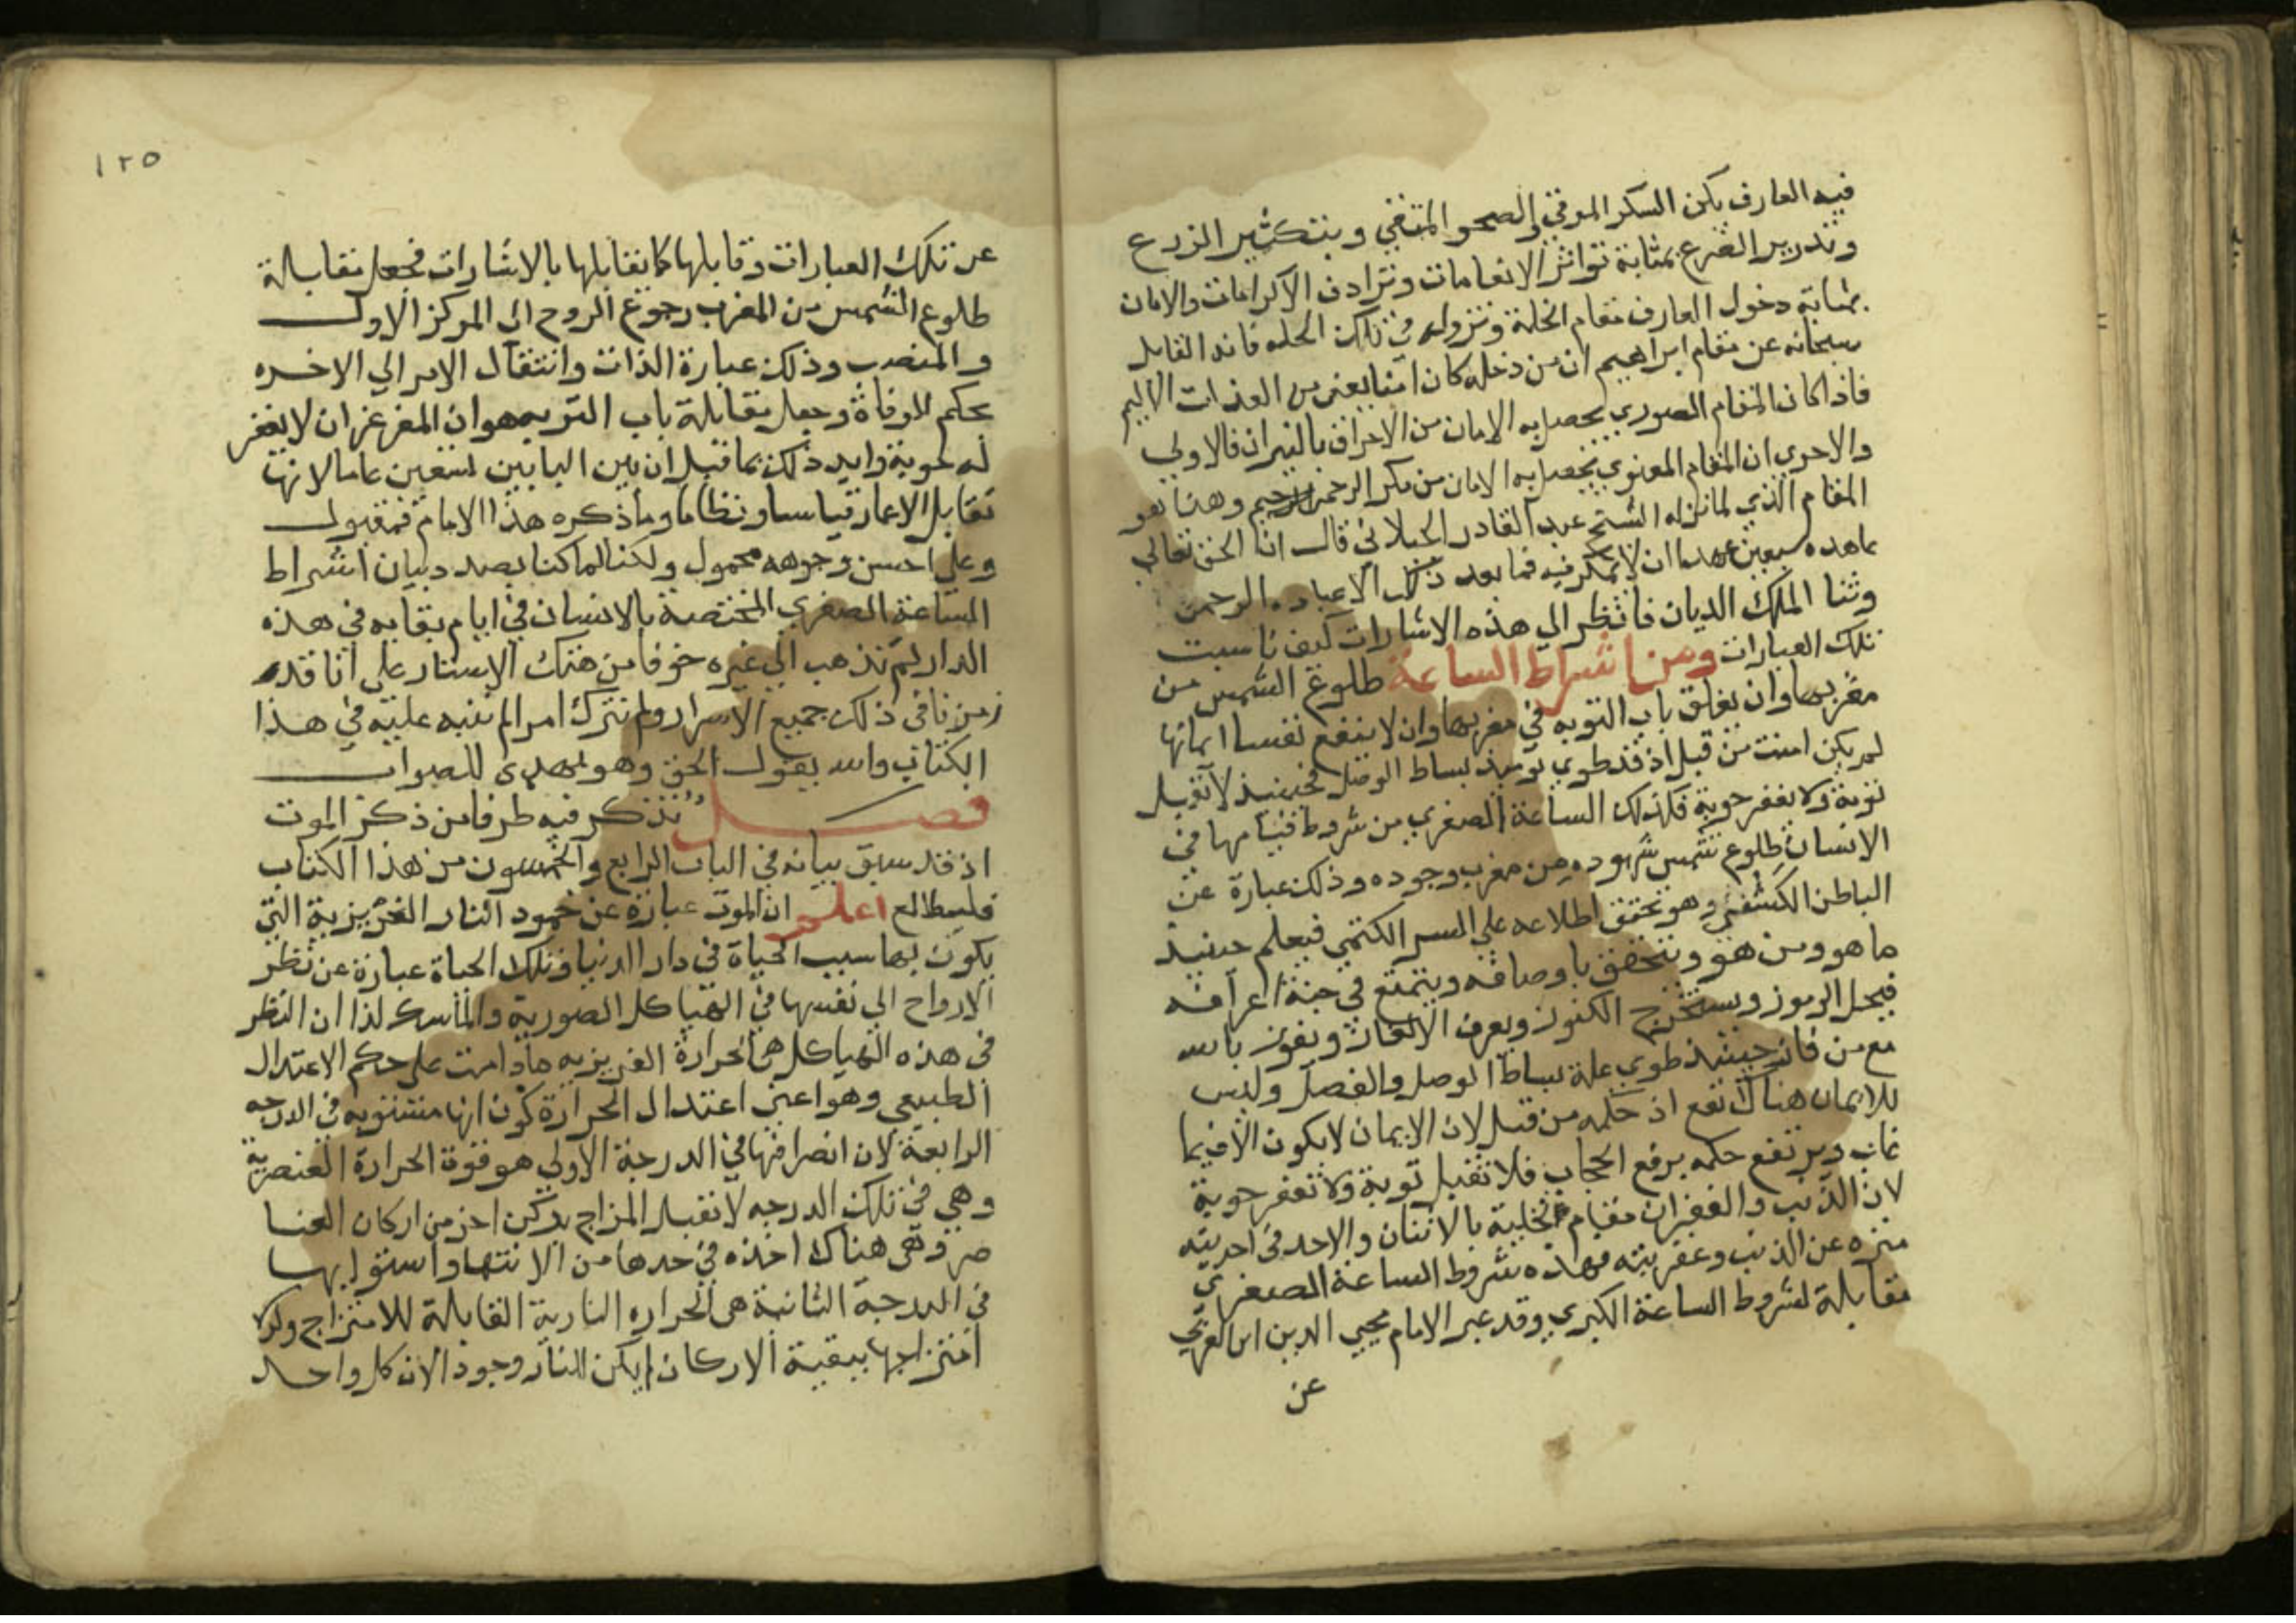 فيه العارف يكن السكر المرقي والصحو المتقي وبتكثير الزرع
وتدرير الضرع بمثابة تواتر الانعامات وترادف الاكرامات والامان
بمثابة دخول العارف مقام الخلة ونزوله في تلك الحله فانه القايل
سبحانه عن مقام ابراهيم ان من دخله كان امنا يعني من العذاب الاليم
فاذا كان المقام الصوري يحصل به الامان من الاحراق بالنيران فالاولي
والاحري ان المقام المعنوي يحصل به الامان من مكر الرحمن وهذا هو
المقام الذي لما نزله الشيخ عبد القادر الجيلاني قال ان الحق تعالي
عاهده سبعين عهدا ان لا يمكر فيه فما بعد ذلك الا عباده الرحمن
وثنا الملك الديان فانظر الي هذه الاشارات كيف ناسبت
تلك العبارات ومن اشراط الساعة طلوع الشمس من
مغربها وان يغلق باب التوبه في مغربها وان لا ينفع نفسا ايمانها
لم يكن امنت من قبل اذ قد طوي يوميذ بساط الوصل فحينيذ لا تقبل
توبة ولا يغفر حوبة فكذلك الساعة الصغري من شروط قيامها في
الانسان طلوع شمس شهوده من مغرب وجوده وذلك عبارة عن
الباطن الكشفي وهو تحقق اطلاعه علي السر الكتمي فيعلم حينيذ
ما هو ومن هو ويتحقق باوصافه ويتمتع في جنة اعرافه
فيحل الرموز ويستخرج الكنوز ويعرف الالغاز ويفوز بالله
مع من فاز حينئذ طوي علة بساط الوصل والفصل وليس
للايمان هناك نفع اذ حكمه من قبل لان الايمان لا يكون الا فيما
غاب ويرتفع حكمه برفع الحجاب فلا تقبل توبة ولا تغفر حوبة
لان الذنب والغفران مقام تخلية بالاثنان والاحد في احديته
منزه عن الذنب وغفريته فهذه شروط الساعة الصغري
مقابلة لشروط الساعة الكبري وقد عبر الامام محيي الدين ابن العربي
عن
١٢٥
عن تلك العبارات وقابلها كما نقابلها بالاشارات فجعل مقابلة
طلوع الشمس من المغرب رجوع الروح الي المركز الاول
والمنصب وذلك عبارة الذات وانتقال الامر الي الاخره
بحكم الوفاة وجعل مقابلة باب التوبه هو ان المغرغر ان لا يغفر
له حوبة وايد ذلك بما قيل ان بين البابين سبعين عاما لانها
تقابل الاعمار قياسا ونظاما وما ذكره هذا الامام فمقبول
وعلي احسن وجوهه محمول ولكنا لما كنا بصدد بيان اشراط
الساعة الصغري المختصة بالانسان في ايام بقايه في هذه
الدار لم نذهب الي غيره خوفا من هتك الاستار علي انا قد
زمزنا في ذلك جميع الاسرار ولم نترك امرا لم ننبه عليه في هذا
الكتاب والله يقول الحق وهو يهدي للصواب
فصل نذكر فيه طرفا من ذكر الموت
اذ قد سبق بيانه في الباب الرابع والخمسون من هذا الكتاب
فليطالع اعلم ان الموت عبارة عن خمود النار الغريزية التي
يكون بها سبب الحياة في دار الدنيا وتلك الحياة عبارة عن نظر
الارواح الي نفسها في الهياكل الصورية والماسك لذا ان النظر
في هذه الهياكل هي الحرارة الغريزيه ما دامت علي حكم الاعتدال
الطبيعي وهو اعني اعتدال الحرارة كون انها مستويه في الدرجه
الرابعة لان انصرافها في الدرجة الاولي هو قوة الحرارة العنصرية
وهي في تلك الدرجه لا تقبل المزاج بركن اخر من اركان العنا
صر وهي هناك اخذه في حدها من الانتها واستوايها
في الدرجة الثانية هي الحراره النارية القابلة للامتزاج ولولا
امتزاجها ببقية الاركان لم يكن للنار وجود الان كل واحد